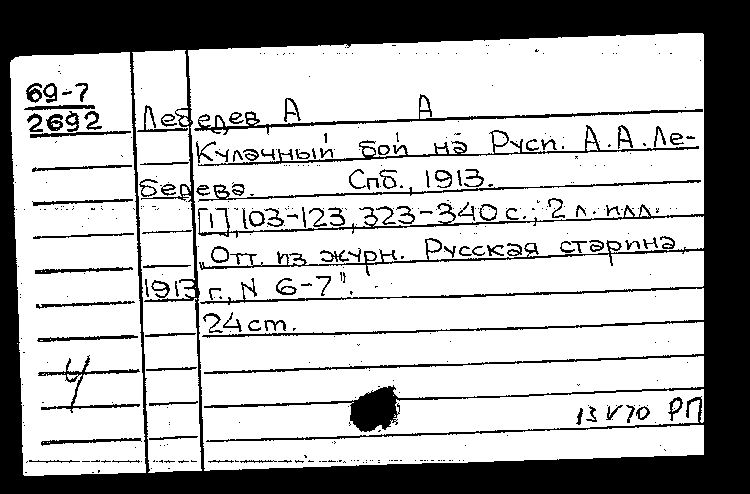 69-7
2692
Лебедев, А А
Кулачный бой на Руси. А.А.Ле-
бедева. Спб., 1913.
[1],103-123,323-340 с.; 2 л. илл.
"Отт. из журн. Русская старина,
1913 г., N 6-7".
24 cm.
Ч
13 V 70 РП